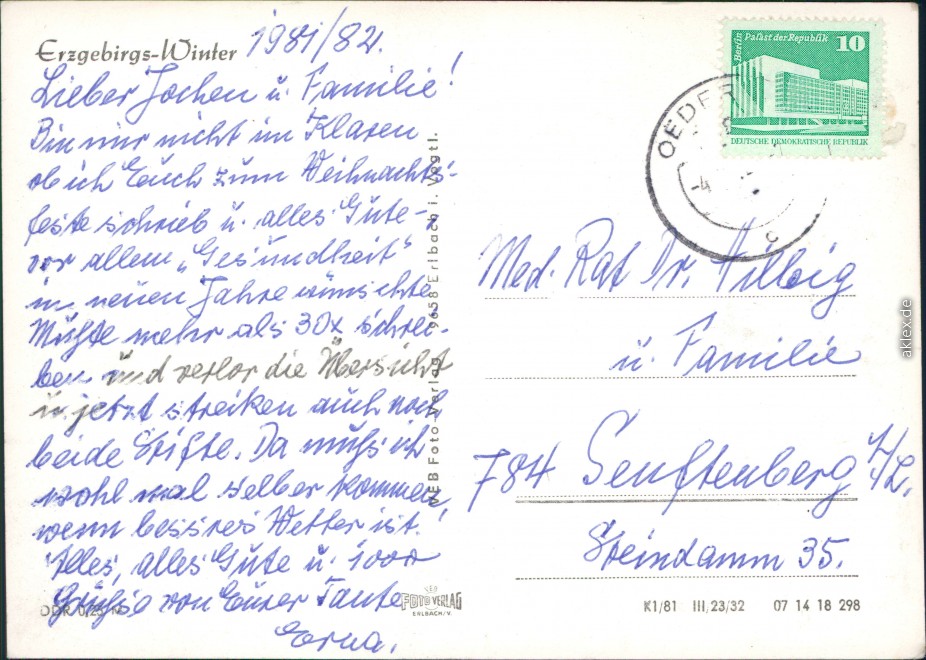 Erzgebirgs-Winter 1981/82.
Lieber Jochen u. Familie!
Bin mir nicht im Klaren
ob ich Euch zum Weihnachts-
feste schrieb u. alles Gute -
vor allem „Gesundheit"
im neuen Jahre wünschte
Mußte mehr als 30x schrei-
ben und verlor die Übersicht
u. jetzt streiken auch noch
beide Stifte. Da muß ich
wohl mal selber kommen,
wenn bessres Wetter ist!
Alles, alles Gute u. 1000
Grüße von Eurer Tante
Erna.
VEB Foto-Verlag 9658 Erlbach i. Vogtl.
Berlin Palast der Republik 10
DEUTSCHE DEMOKRATISCHE REPUBLIK
OEDER
-4
c
Med. Rat Dr. Hilbig
u. Familie
784 Senftenberg N/L.
Steindamm 35.
FOTO VERLAG
ERLBACH/V.
K1/81 III,23/32 07 14 18 298
aklex.de